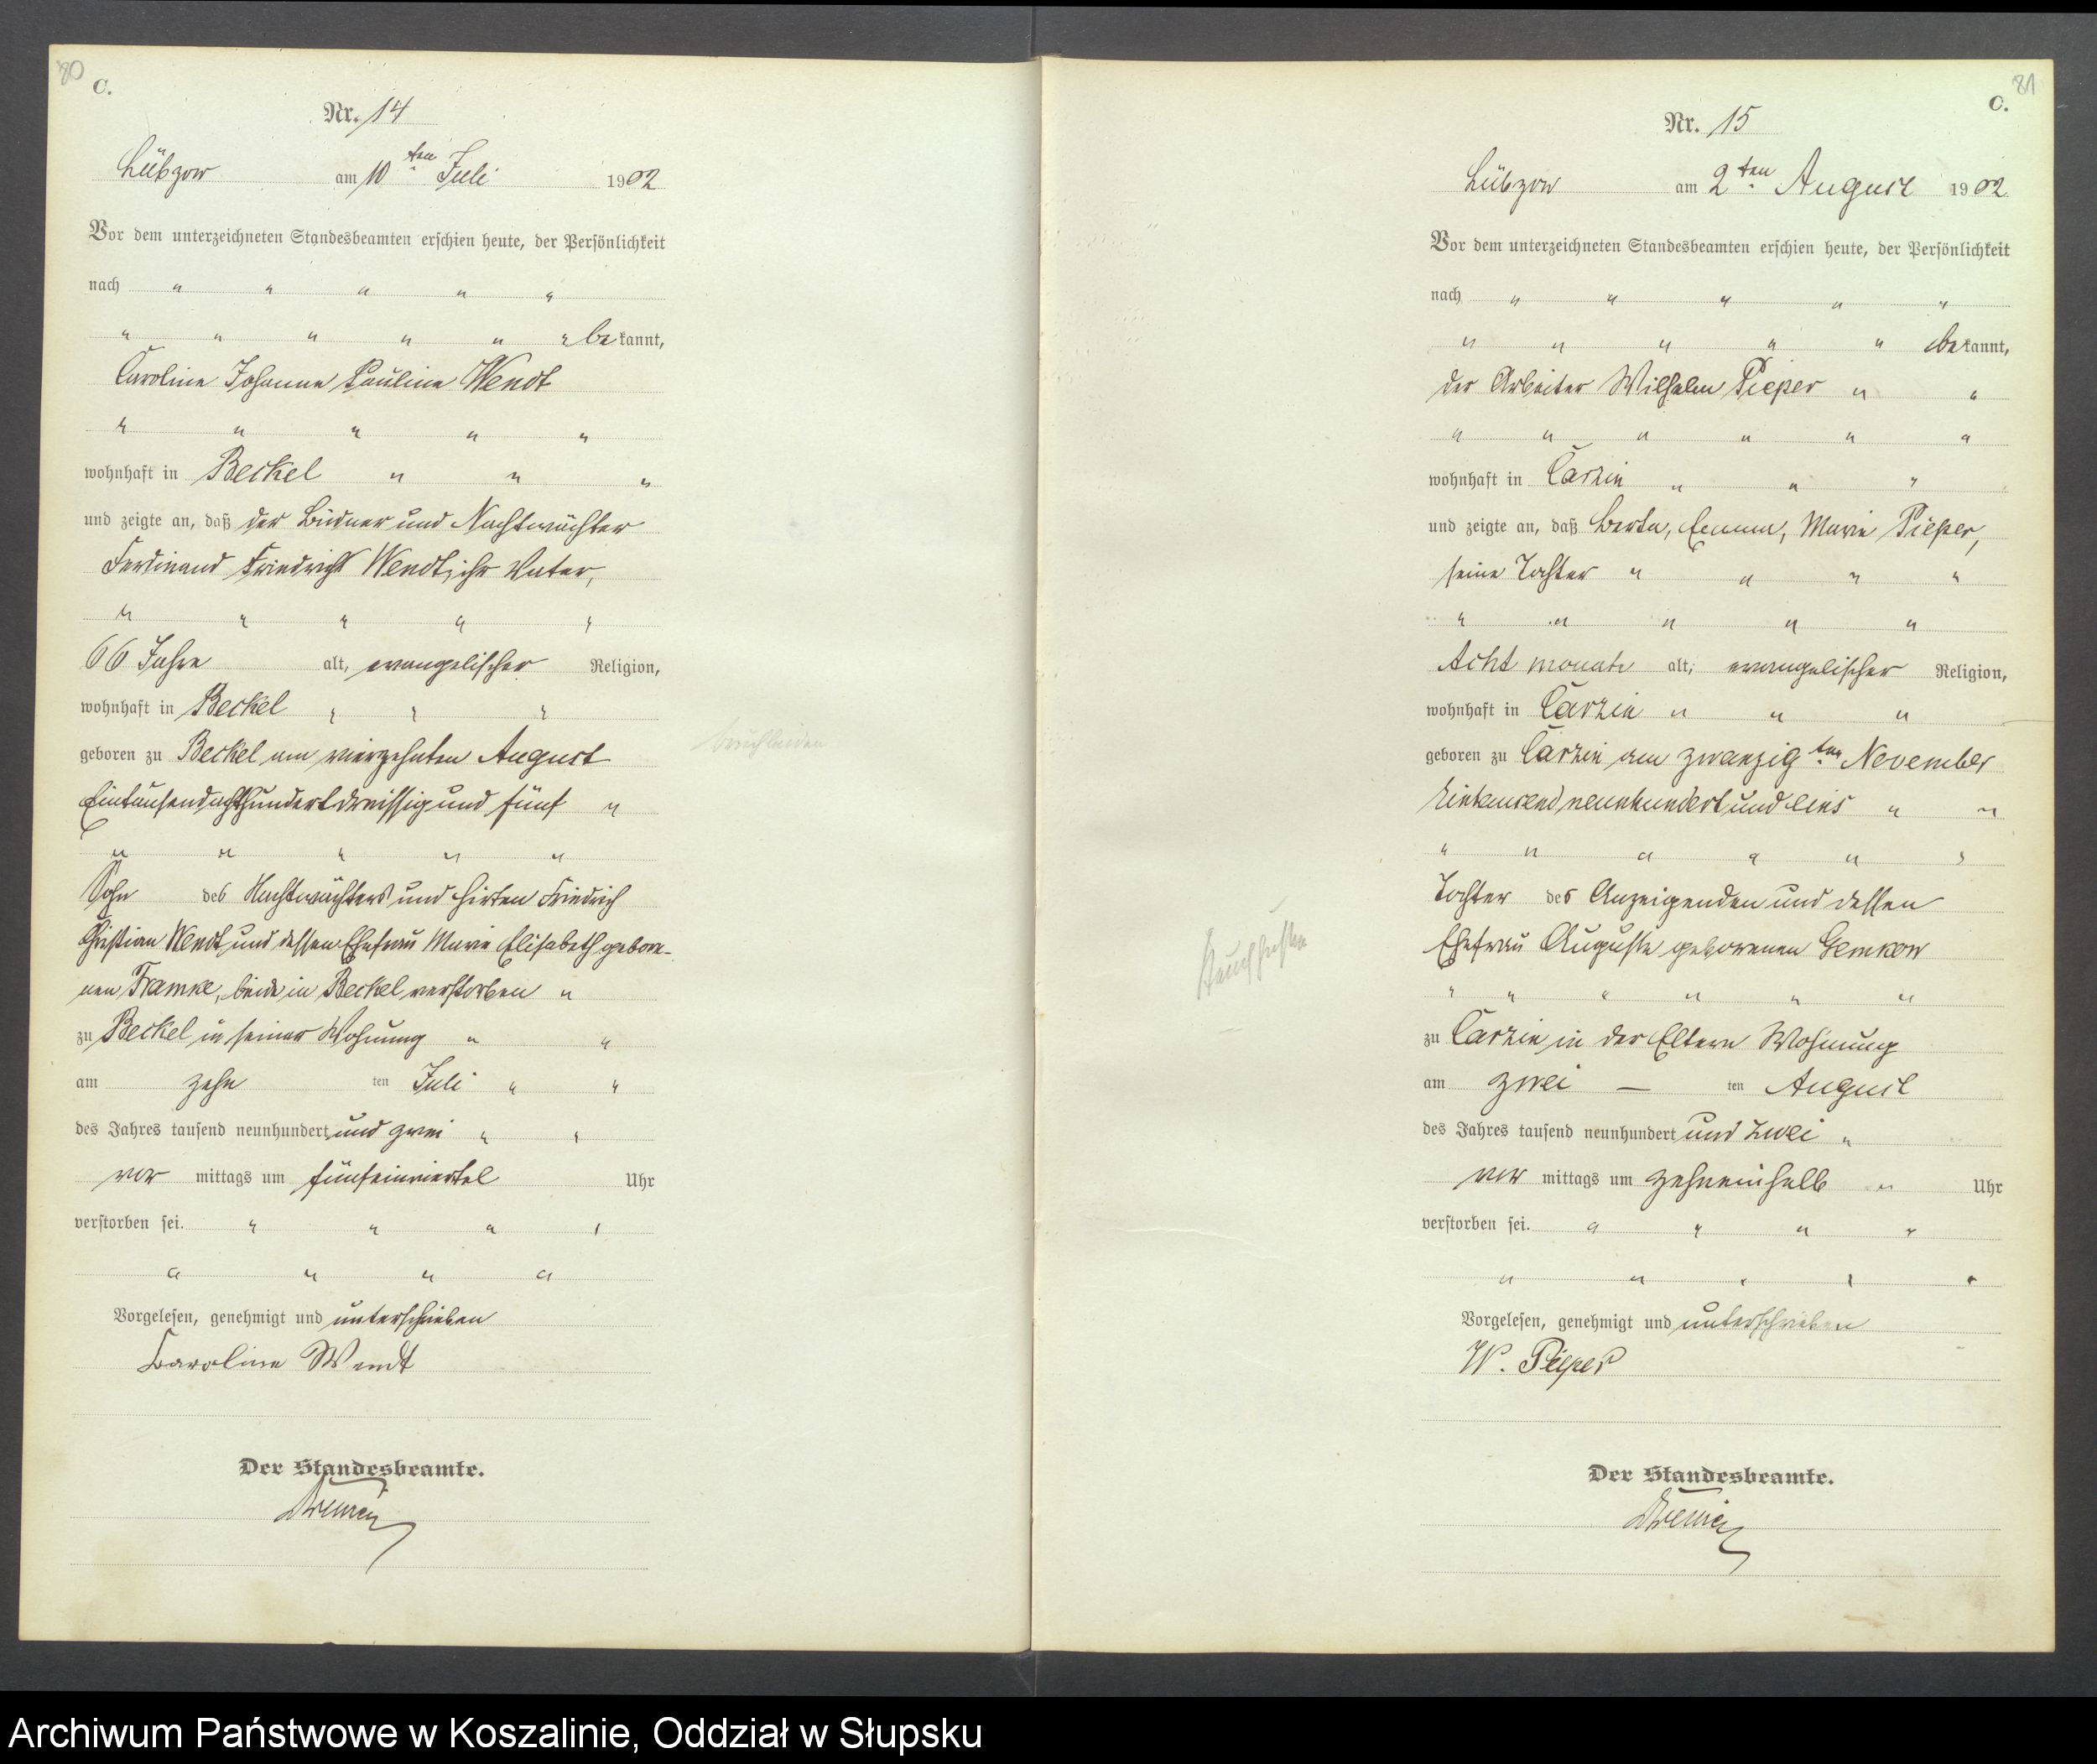 80
C.
Nr. 14
Lübzow am 10ten Juli 1902
Vor dem unterzeichneten Standesbeamten erschien heute, der Persönlichkeit
nach " " " " "
" " " " " " bekannt,
Caroline Johanne Pauline Wendt
" " " " "
wohnhaft in Beckel " " "
und zeigte an, daß der Büdner und Nachtwächter
Ferdinand Friedrich Wendt, ihr Vater,
" " " " "
66 Jahre alt, evangelischer Religion,
wohnhaft in Beckel " " "
geboren zu Beckel am vierzehnten August
Eintausendachthundertdreissig und fünf "
" " " " "
Sohn des Nachtwächters und Hirten Friedrich
Christian Wendt und dessen Ehefrau Marie Elisabeth gebore-
nen Framke, beide in Beckel verstorben "
zu Beckel in seiner Wohnung " "
am zehn ten Juli " "
des Jahres tausend neunhundert und zwei " "
vor mittags um fünfeinviertel Uhr
verstorben sei. " " " "
" " " "
Vorgelesen, genehmigt und unterschrieben
Caroline Wendt
Der Standesbeamte.
Bruchleiden
81
C.
Nr. 15
Lübzow am 2ten August 1902
Vor dem unterzeichneten Standesbeamten erschien heute, der Persönlichkeit
nach " " " " "
" " " " " bekannt,
der Arbeiter Wilhelm Pieper " "
" " " " " "
wohnhaft in Carzin " " "
und zeigte an, daß Berta, Emma, Marie Pieper,
seine Tochter " " " "
" " " " "
Acht monate alt, evangelischer Religion,
wohnhaft in Carzin " " "
geboren zu Carzin am zwanzigten November
Eintausend neunhundert und eins " "
" " " " " "
Tochter des Anzeigenden und dessen
Ehefrau Auguste geborenen Gemkow
" " " " " "
zu Carzin in der Eltern Wohnung
am zwei — ten August
des Jahres tausend neunhundert und zwei "
vor mittags um zehneinhalb " Uhr
verstorben sei. " " " "
" " " " "
Vorgelesen, genehmigt und unterschrieben
W. Pieper
Der Standesbeamte.
Archiwum Państwowe w Koszalinie, Oddział w Słupsku